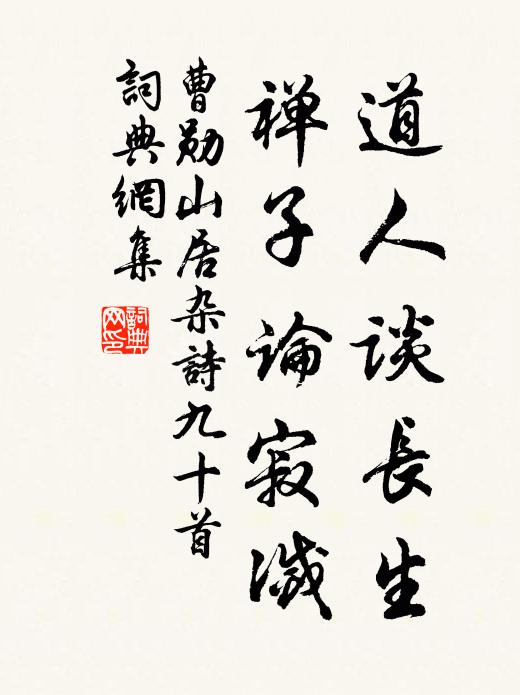 道人談長生
禅子論寂滅
曹勛山居杂詩九十首
詞典網集
詞典
网印